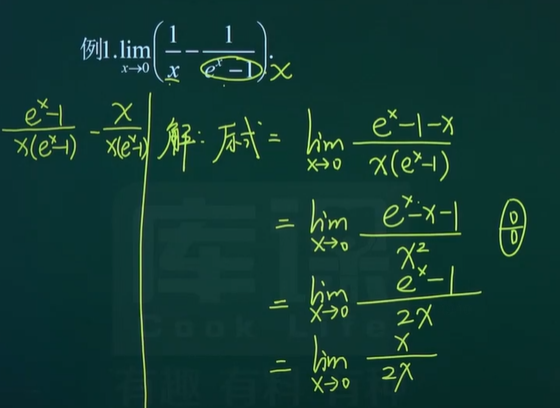 例1. lim x→0 (1/x − 1/(eˣ−1)). x
(eˣ−1)/(x(eˣ−1)) − x/(x(eˣ−1))
解: 原式 = lim x→0 (eˣ−1−x)/(x(eˣ−1))
= lim x→0 (eˣ−x−1)/x² 0/0
= lim x→0 (eˣ−1)/2x
= lim x→0 x/2x
库课
Cook Life
有趣 有料